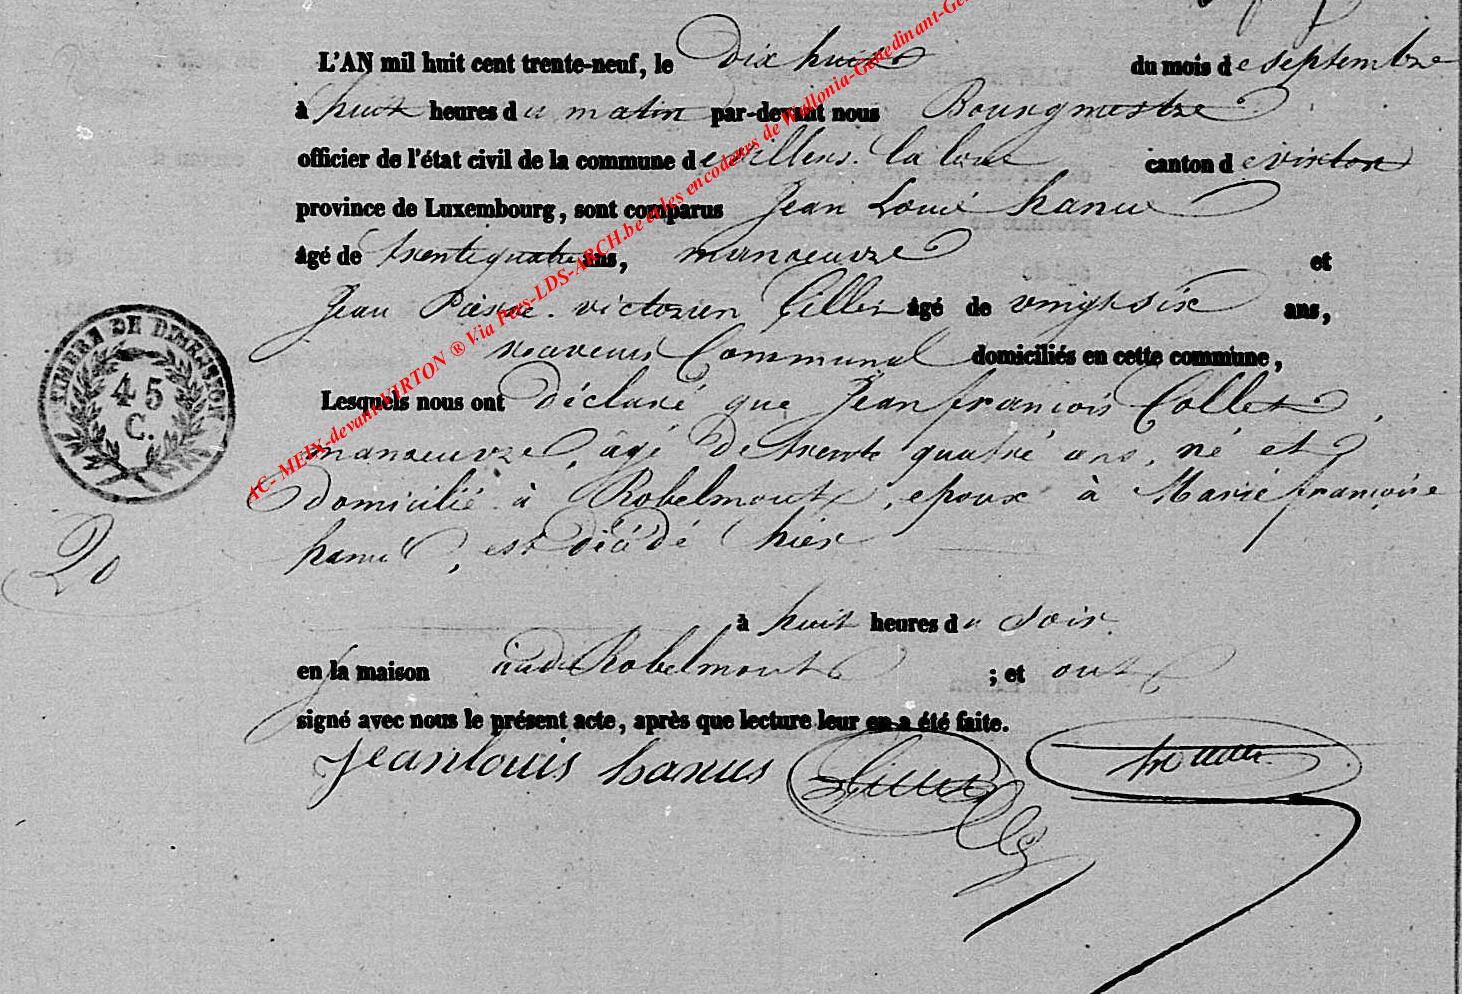 L'AN mil huit cent trente-neuf, le Dix huit du mois de septembre
à huit heures du matin par-devant nous Bourgmestre
officier de l'état civil de la commune de villers. la loue canton de virton
province de Luxembourg, sont comparus Jean Louis hanus
âgé de trentequatre ans, manoeuvre et
Jean Pierre. victorien Gillet âgé de vingt six ans,
receveur Communal domiciliés en cette commune,
Lesquels nous ont déclaré que Jean françois Collet,
manoeuvre, âgé de trente quatre ans, né et
domicilié à Robelmont, epoux à Marie françoise
hanus, est décédé hier
à huit heures du soir
en la maison Robelmont ; et ont
signé avec nous le présent acte, après que lecture leur en a été faite.
jeanlouis hanus
TIMBRE DE DIMENSION
45
C.
20
AC- MEIX-devant-VIRTON ® Via Fers-LDS-ARCH.be et les encodeurs de Wallonia-Genedinant-Ge